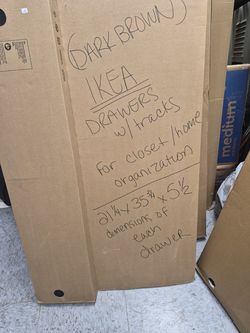 (DARK BROWN)
IKEA
DRAWERS
w/ tracks
for closet/home
organization
21 1/4 x 35 7/8 x 5 1/2
dimensions of
each
drawer
medium